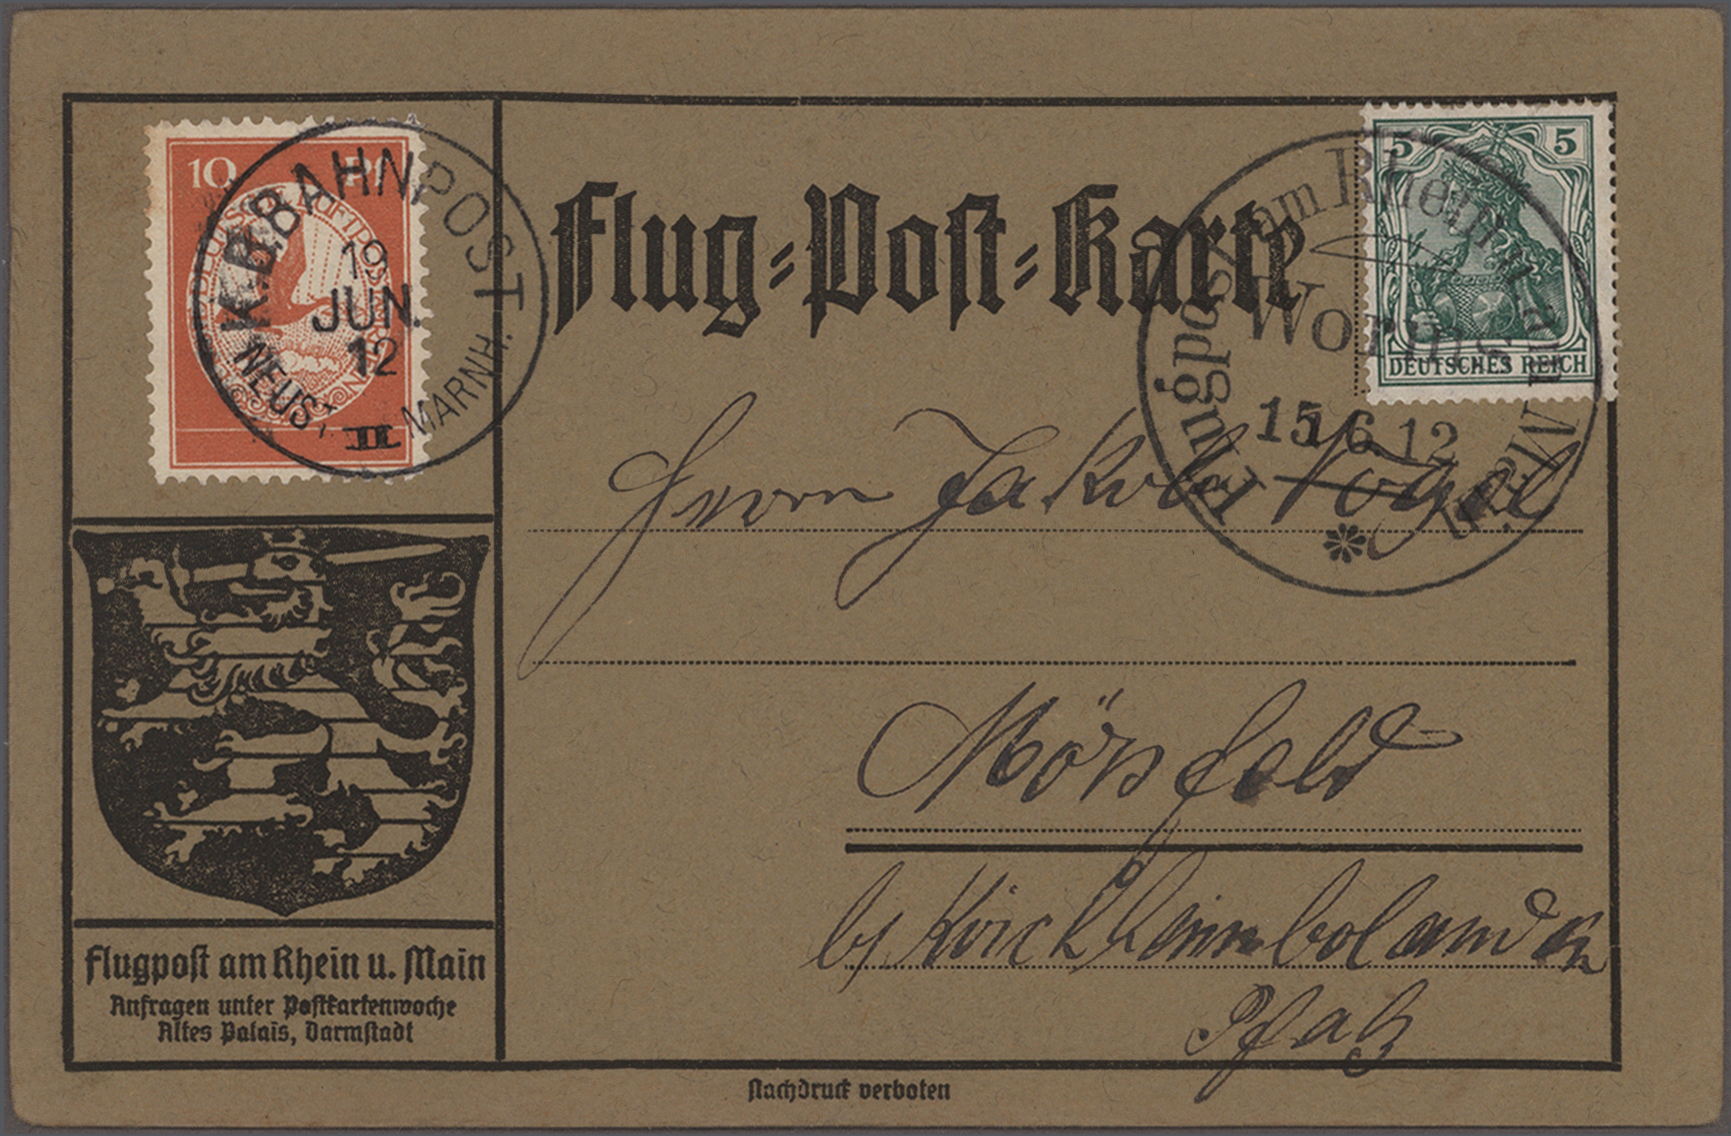 10 Pf
K.B.BAHNPOST
19
JUN.
12
NEUS
II
MARNH.
Flug=Post=Karte
Flugpost am Rhein u. am Main
Worms
15.6.12
5 5
DEUTSCHES REICH
Herrn Jakob Vogel
Mörsfeld
b/ Kirchheimbolanden
Pfalz
Flugpost am Rhein u. Main
Anfragen unter Postkartenwoche
Altes Palais, Darmstadt
Nachdruck verboten